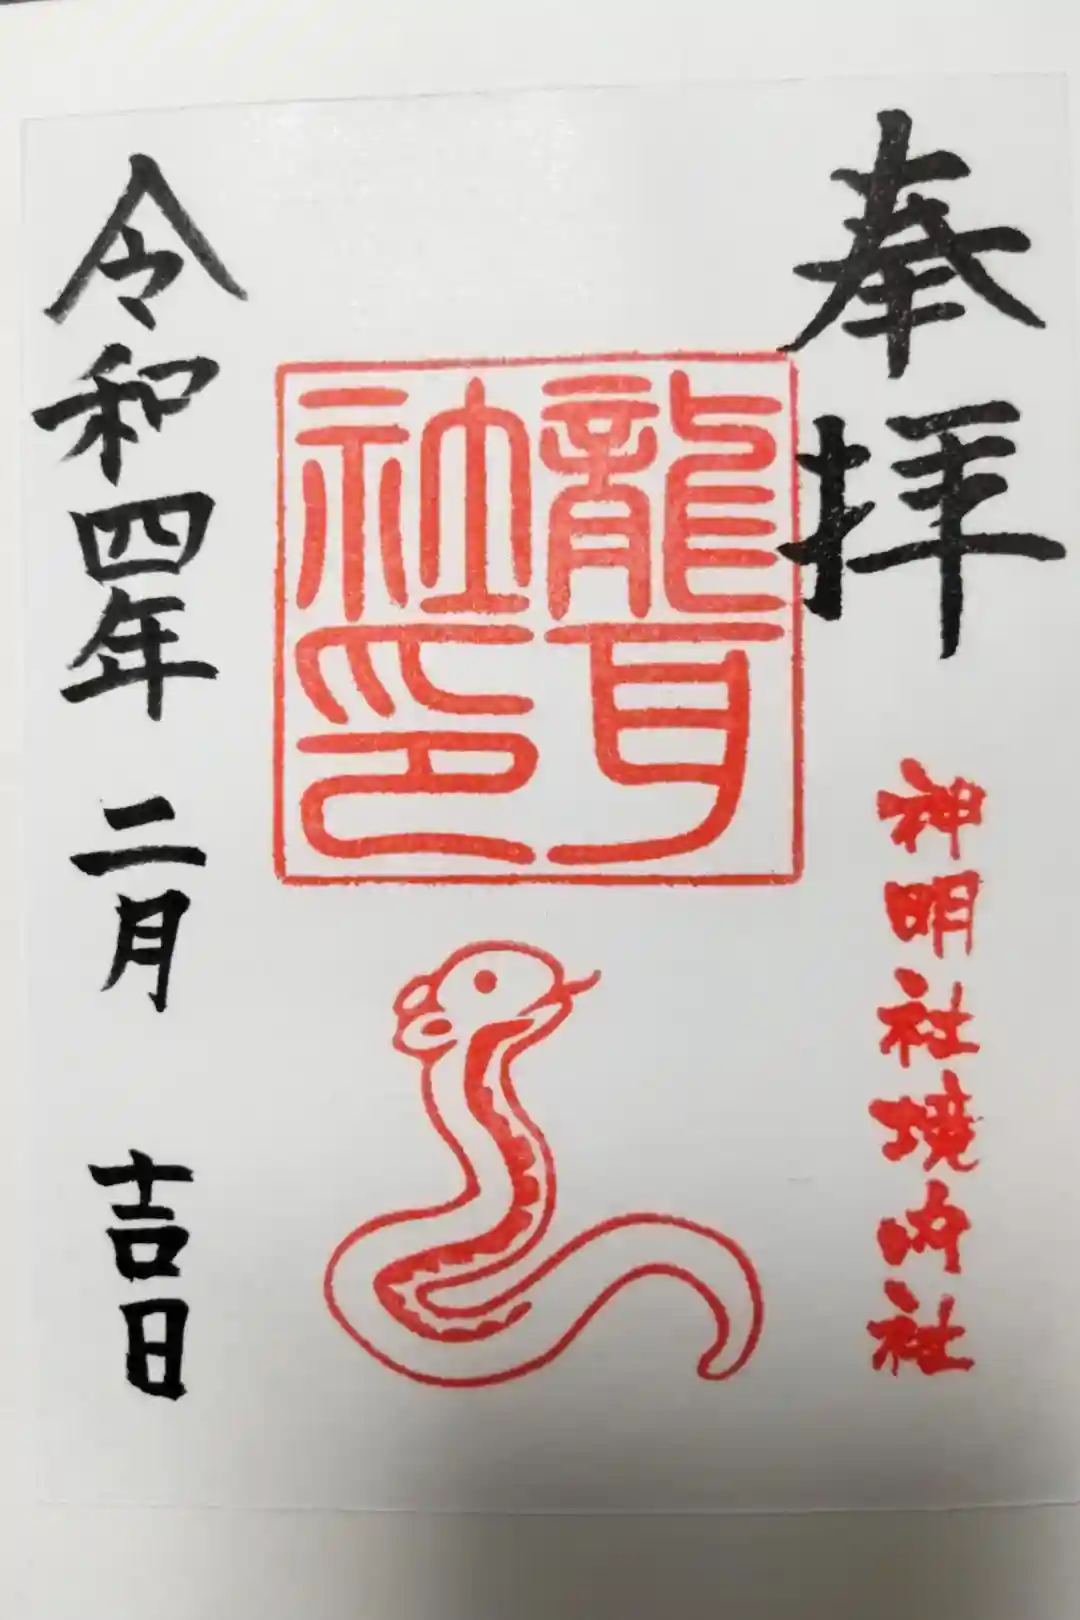 奉拝
神明社境内社
龍耳
社印
令和四年 二月 吉日